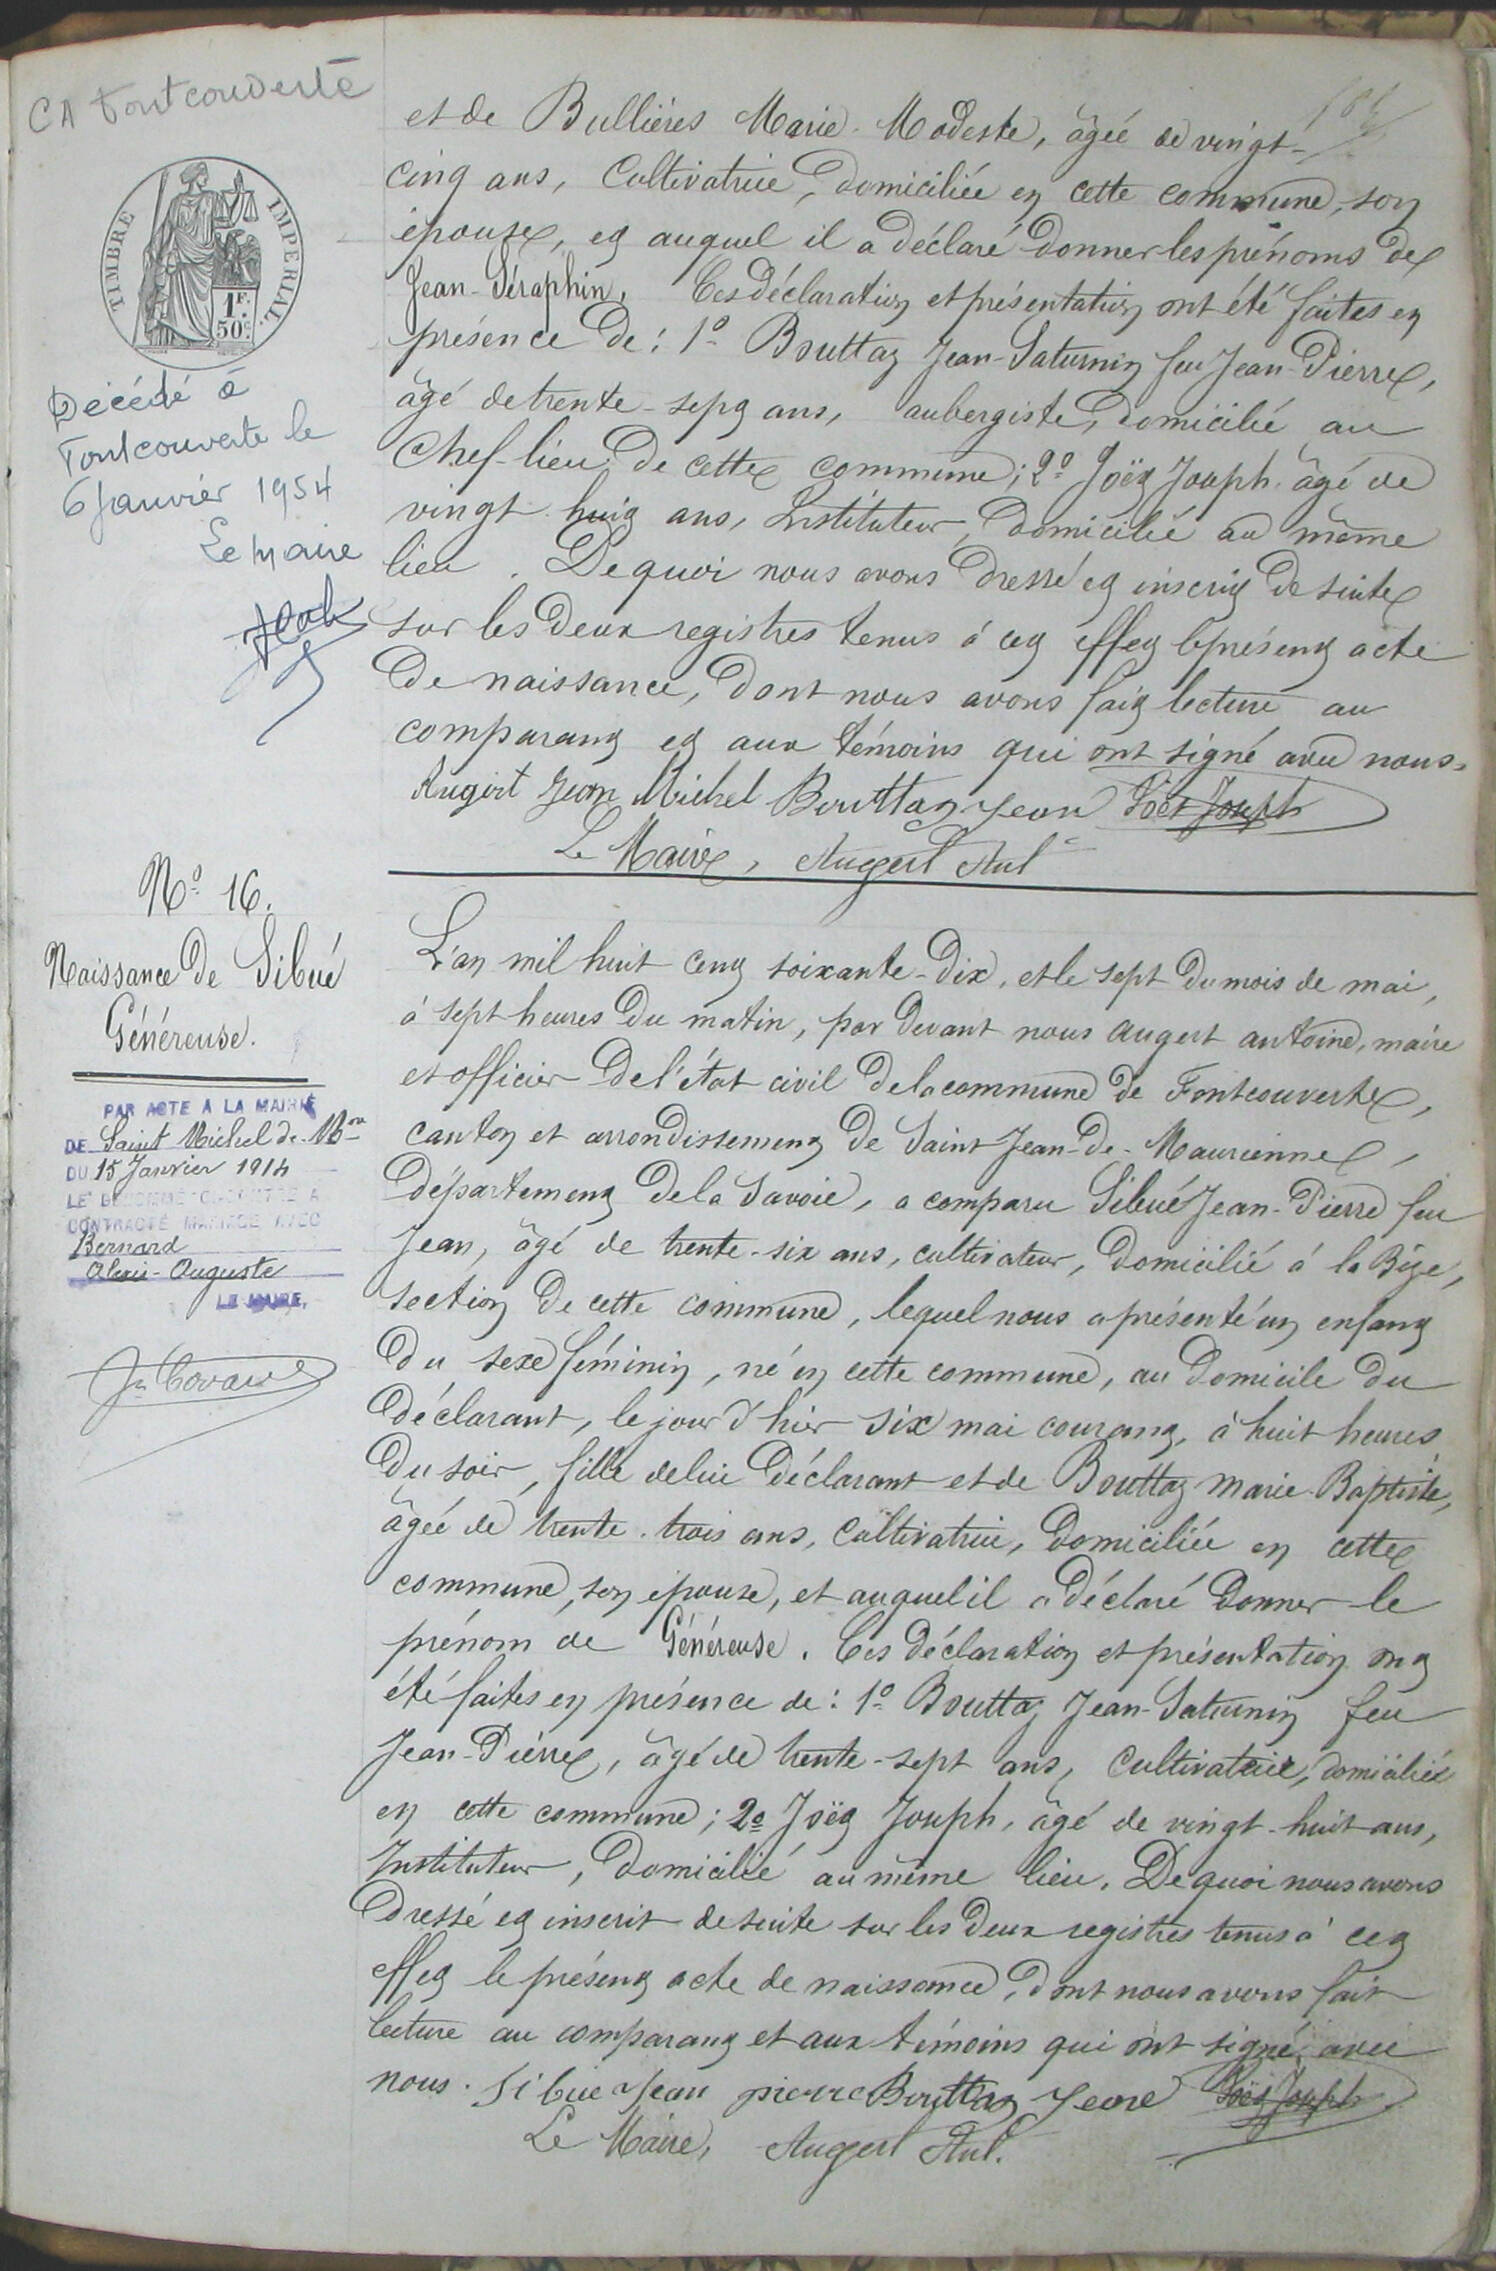 CA Fontcouverte
TIMBRE IMPERIAL.
1F.
50c.
Décédé à
Fontcouverte le
6 Janvier 1954
Le Maire
et de Bullières Marie-Modeste, âgée de vingt-
cinq ans, Cultivatrice, domiciliée en cette commune, son
épouse, et auquel il a déclaré donner les prénoms de
Jean-Séraphin. Ces déclaration et présentation ont été faites en
présence de : 1º Bouttaz Jean-Saturnin feu Jean-Pierre,
âgé de trente-sept ans, aubergiste, domicilié au
Chef-lieu de cette commune ; 2º Joët Joseph âgé de
vingt-huit ans, Instituteur, domicilié au même
lieu. De quoi nous avons dressé et inscrit de suite
sur les deux registres tenus à cet effet le présent acte
de naissance, dont nous avons fait lecture au
comparant et aux témoins qui ont signé avec nous.
Augert Jean Michel Bouttaz Jean Joët Joseph
Le Maire, Augert Ant
Nº 16.
Naissance de Sibué
Généreuse.
PAR ACTE A LA MAIRIE
DE Saint Michel de Mne
DU 15 Janvier 1914
LE CONTRE A
CONTRACTÉ MARIAGE AVEC
Bernard
Alexis-Auguste
LE MAIRE,
L'an mil huit cent soixante-dix, et le sept du mois de mai,
à sept heures du matin, par devant nous Augert antoine, maire
et officier de l'état civil de la commune de Fontcouverte,
canton et arrondissement de Saint Jean-de-Maurienne,
département de la Savoie, a comparu Sibué Jean-Pierre feu
Jean, âgé de trente-six ans, cultivateur, domicilié à la Bize,
section de cette commune, lequel nous a présenté un enfant
du sexe féminin, né en cette commune, au domicile du
déclarant, le jour d'hier six mai courant, à huit heures
du soir, fille de lui déclarant et de Bouttaz Marie-Baptiste,
âgée de trente-trois ans, Cultivatrice, domiciliée en cette
commune, son épouse, et auquel il a déclaré donner le
prénom de Généreuse. Ces déclaration et présentation ont
été faites en présence de : 1º Bouttaz Jean-Saturnin feu
Jean-Pierre, âgé de trente-sept ans, Cultivatrice, domiciliée
en cette commune ; 2º Joët Joseph, âgé de vingt-huit ans,
Instituteur, domicilié au même lieu. De quoi nous avons
dressé et inscrit de suite sur les deux registres tenus à cet
effet le présent acte de naissance, dont nous avons fait
lecture au comparant et aux témoins qui ont signé avec
nous. Sibue Jean pierre Bouttaz Jean Joët Joseph
Le Maire, Augert Ant.